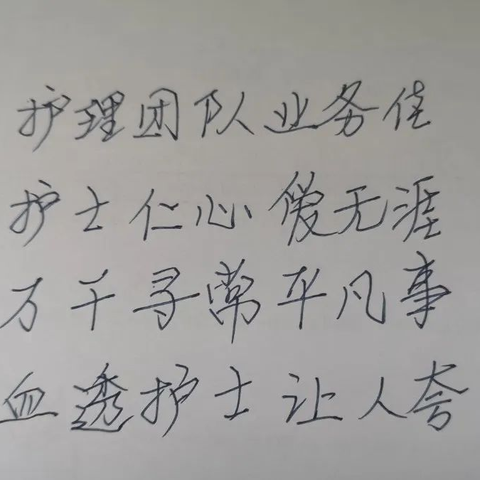 护理团队业务佳
护士仁心爱无涯
万千寻常平凡事
血透护士让人夸